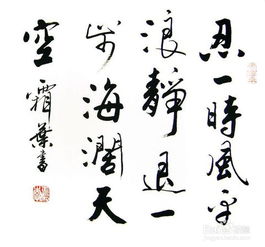 忍一時風平
浪靜退一
步海濶天
空霜葉書